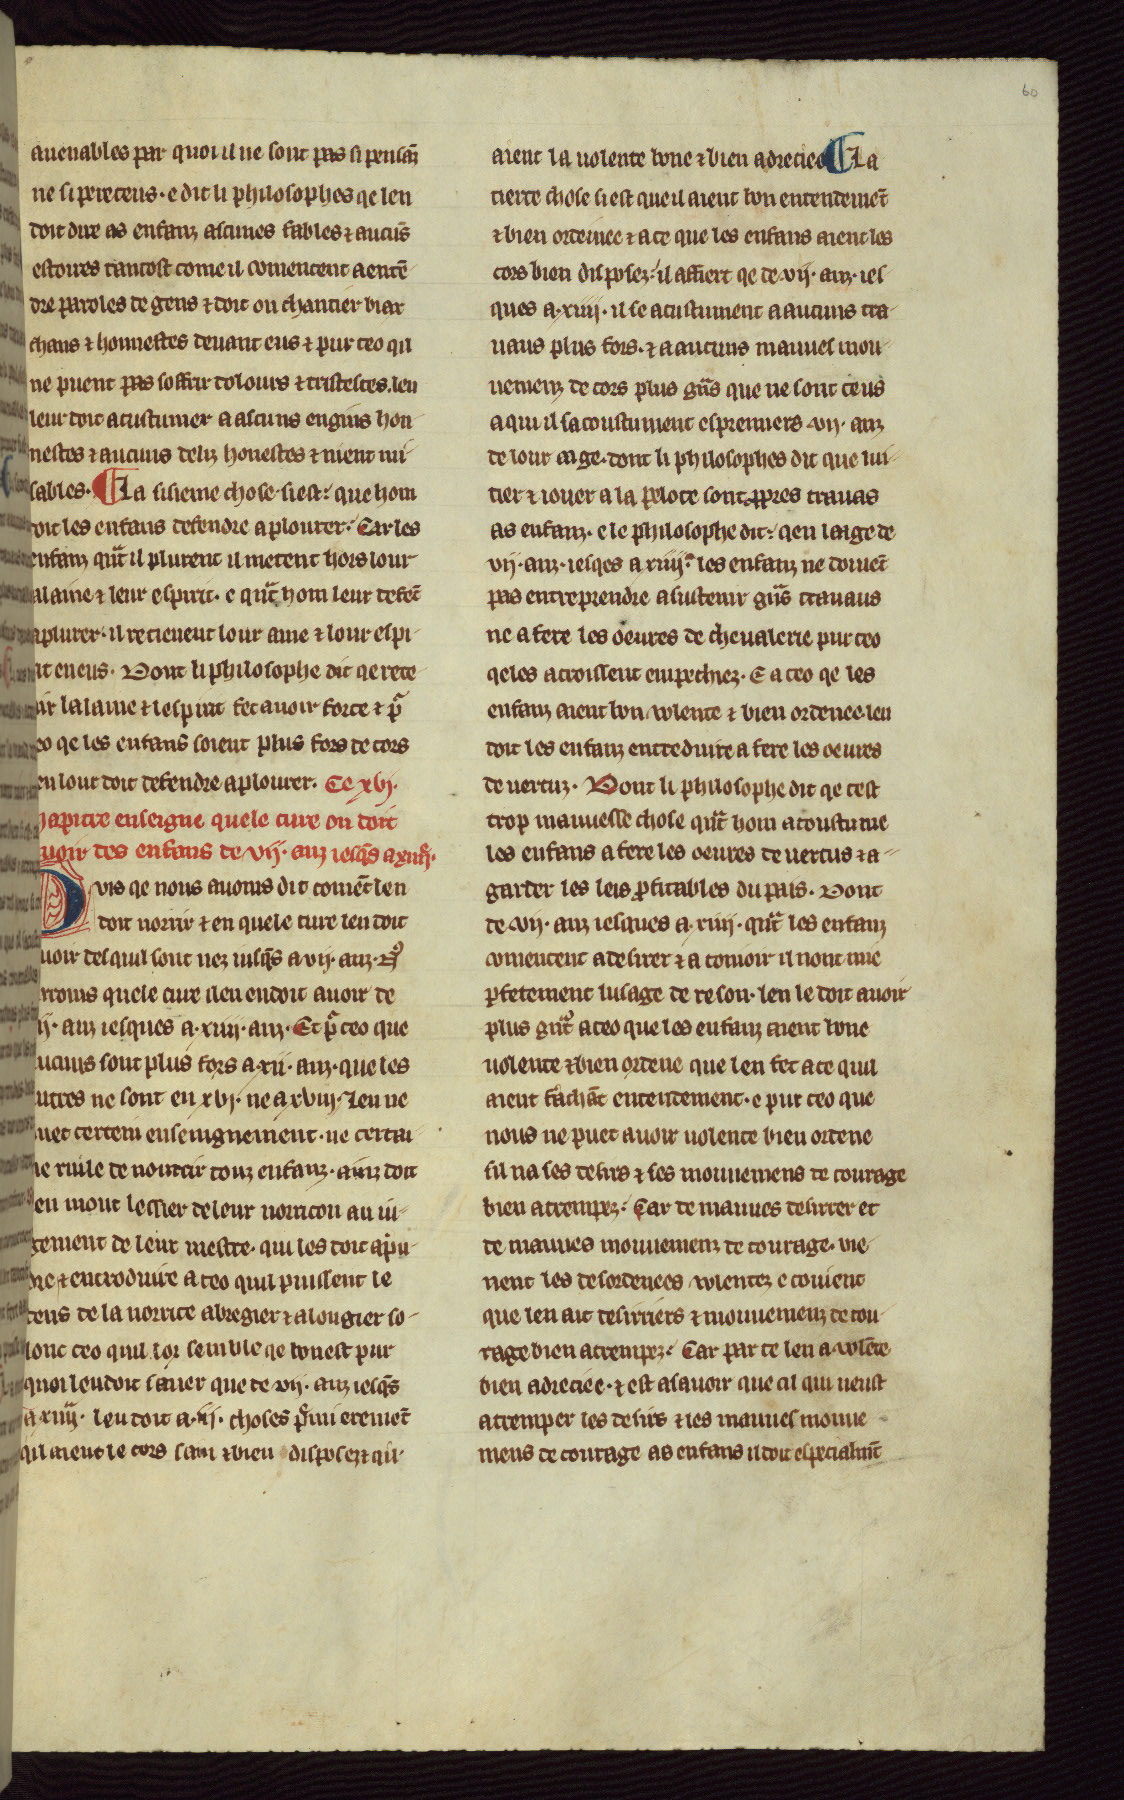 60
auenables par quoi il ne sont pas si pensãz
ne si pereceus · e dit li philosophes qe len
doit dire as enfanz ascunes fables ⁊ aucũs
estoires tantost come il comencent a entẽ-
dre paroles de gens ⁊ doit on chantier biax
chans ⁊ honnestes deuant eus ⁊ pur ceo qu
ne puent pas soffrir dolours ⁊ tristesces. len
leur doit acustumer a ascuns engins hon-
nestes ⁊ aucuns deliz honestes ⁊ nient nui-
sables · ¶ La sisieme chose si est: que hom
doit les enfans defendre a plourer · Car les
enfanz qũt il plurent il metent hors lour
alaine ⁊ leur espirit · e qũt hom leur defẽt
aplurer · il retienent lour ame ⁊ lour espi-
it en eus · Dont li philosophe dit qe rete-
ir lalaine ⁊ lespirit fet auoir force ⁊ p̃
eo qe les enfans soient plus fors de cors
en lour doit defendre a plourer · Ce xvj ·
hapitre enseigne quele cure on doit
uoir des enfans de vij · anz iesq̃s a xiiij ·
Dvis qe nous auoms dit comẽt len
doit norrir ⁊ en quele cure len doit
uoir des quil sont nez iusq̃s a vij · anz ·
irroms quele cure lleu endoit auoir de
ij · anz iesques a · xiiij · anz · Et p̃ ceo que
ucuns sont plus fors a xij · anz · que les
utres ne sont en xvj · ne a xviij · len ne
uet certein enseingnement · ne certai-
ne riule de nourrir touz enfanz · ainz doit
en mout lessier de leur norricon au iu-
gement de leur mestre · qui les doit apñ-
dre ⁊ entroduire a ceo quil puissent le
tens de la norrice abregier ⁊ alongier so-
lonc ceo quil lor semble qe bonest pur
quoi len doit sauer que de vij · anz iesq̃s
a xiiij · len doit a · iij · choses p̃mierement̃
qil aient le cors sain ⁊ bien disposez ⁊ qil
aient la uolente bone ⁊ bien adreciee ¶ La
tierce chose si est que il aient bon entendemẽt
⁊ bien ordenee ⁊ a ce que les enfans aient les
cors bien disposez: il affiert qe de vij · anz · ies-
ques a · xiiij · il se acustument a aucuns tra-
uaus plus fors · ⁊ a aucuns mauuel mou-
uemenz de cors plus gñs que ne sont ceus
a qui il sacoustument es premiers vij · anz
de lour aage · dont li philosophes dit que lui-
tier ⁊ iouer a la pelote sont ꝓpres trauas
as enfanz · e le philosophe dit: qen laige de
vij · anz · iesqes a xiiij · les enfanz ne doiuẽt
pas entreprendre a sustenir gñs trauaus
ne a fere les oeures de cheualerie pur ceo
qeles acroissent empechiez · E a ceo qe les
enfanz aient bon volente ⁊ bien ordenee · len
doit les enfanz entreduire a fere les oeures
de uertuz · Dont li philosophe dit qe cest
trop mauuesse chose qũt hom acoustume
les enfans a fere les oeures de uertus ⁊ a-
garder les leis ꝓfitables du pais · Dont
de vij · anz iesques a · xiiij · qũt les enfanz
comencent a desirer ⁊ a comoir il nont mie
ꝑfetement lusage de reson · len le doit auoir
plus gñt a ceo que les enfanz aient bone
uolente ⁊ bien ordene que len fet a ce quil
aient sachãt entendement · e pur ceo que
nous ne puet auoir uolente bien ordene
sil na ses desirs ⁊ ses mouuemens de courage
bien atrempez · Car de mauues desirrer et
de mauues mouuemenz de courage · vie-
nent les desordenees volentez e couient
que len ait desirriers ⁊ mouuemenz de cou-
rage bien atrempez · Car par ce len a volẽte
bien adreciee · ⁊ est asauoir que cil qui ueust
atremper les desirs ⁊ les mauues mouue-
mens de courage as enfans il doit especialmẽt